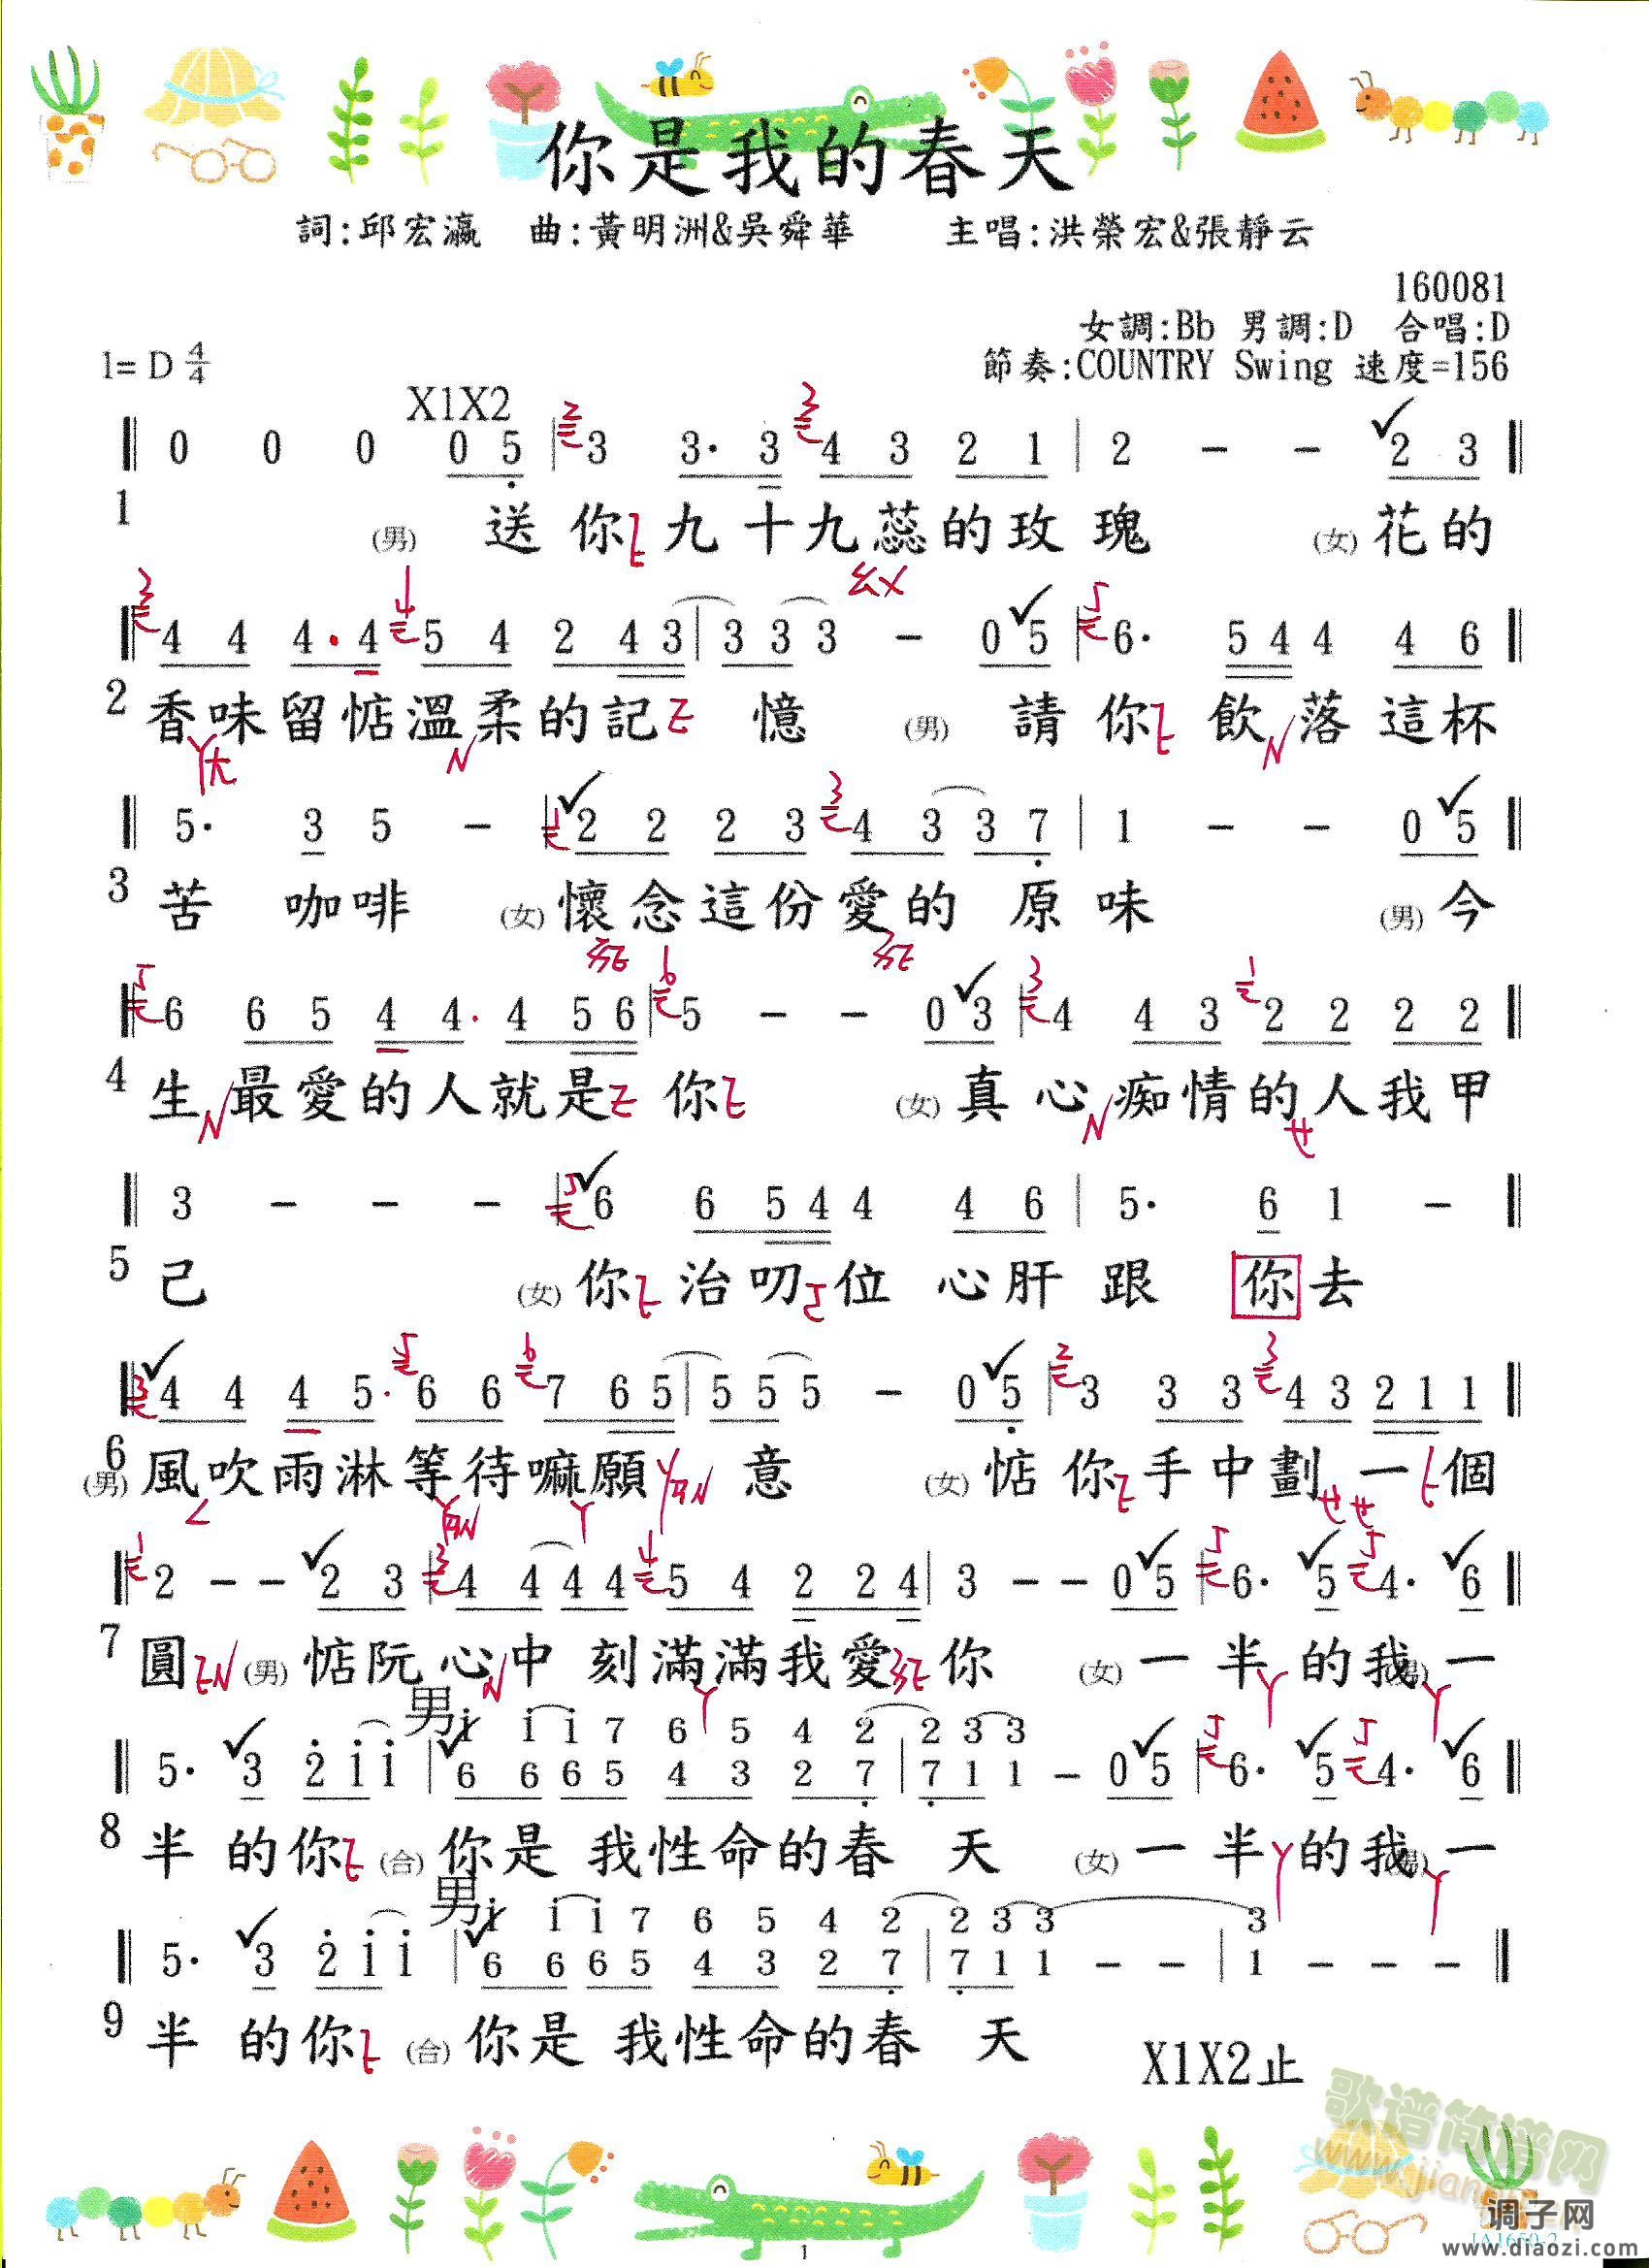 你是我的春天
詞:邱宏瀛 曲:黃明洲&吳舜華 主唱:洪榮宏&張靜云
160081
女調:Bb 男調:D 合唱:D
1= D 4/4 節奏:COUNTRY Swing 速度=156
X1X2
0 0 0 0 5 | 3 3· 3 4 3 2 1 | 2 - - 2 3
1 (男) 送你九十九蕊的玫瑰 (女) 花的
4 4 4·4 5 4 2 4 3 | 3 3 3 - 0 5 | 6· 5 4 4 4 6
2 香味留惦溫柔的記憶 (男) 請你飲落這杯
5· 3 5 - | 2 2 2 3 4 3 3 7 | 1 - - 0 5
3 苦咖啡 (女) 懷念這份愛的原味 (男) 今
6 6 5 4 4· 4 5 6 | 5 - - 0 3 | 4 4 3 2 2 2 2
4 生最愛的人就是你 (女) 真心痴情的人我甲
3 - - - | 6 6 5 4 4 4 6 | 5· 6 1 -
5 己 (女) 你治叨位心肝跟你去
4 4 4 5· 6 6 7 6 5 | 5 5 5 - 0 5 | 3 3 3 4 3 2 1 1
6 (男) 風吹雨淋等待嘛願意 (女) 惦你手中劃一個
2 - - 2 3 | 4 4 4 4 5 4 2 2 4 | 3 - - 0 5 | 6· 5 4· 6
7 圓 (男) 惦阮心中刻滿滿我愛你 (女) 一半的我 (男) 一
男 i i i 7 6 5 4 2 | 2 3 3
5· 3 2 i i | 6 6 6 5 4 3 2 7 | 7 1 1 - 0 5 | 6· 5 4· 6
8 半的你 (合) 你是我性命的春天 (女) 一半的我 (男) 一
男 i i i 7 6 5 4 2 | 2 3 3 3
5· 3 2 i i | 6 6 6 5 4 3 2 7 | 7 1 1 - - | 1 - - -
9 半的你 (合) 你是我性命的春天
X1X2止
歌谱简谱网
调子网
1
www.diaozi.com